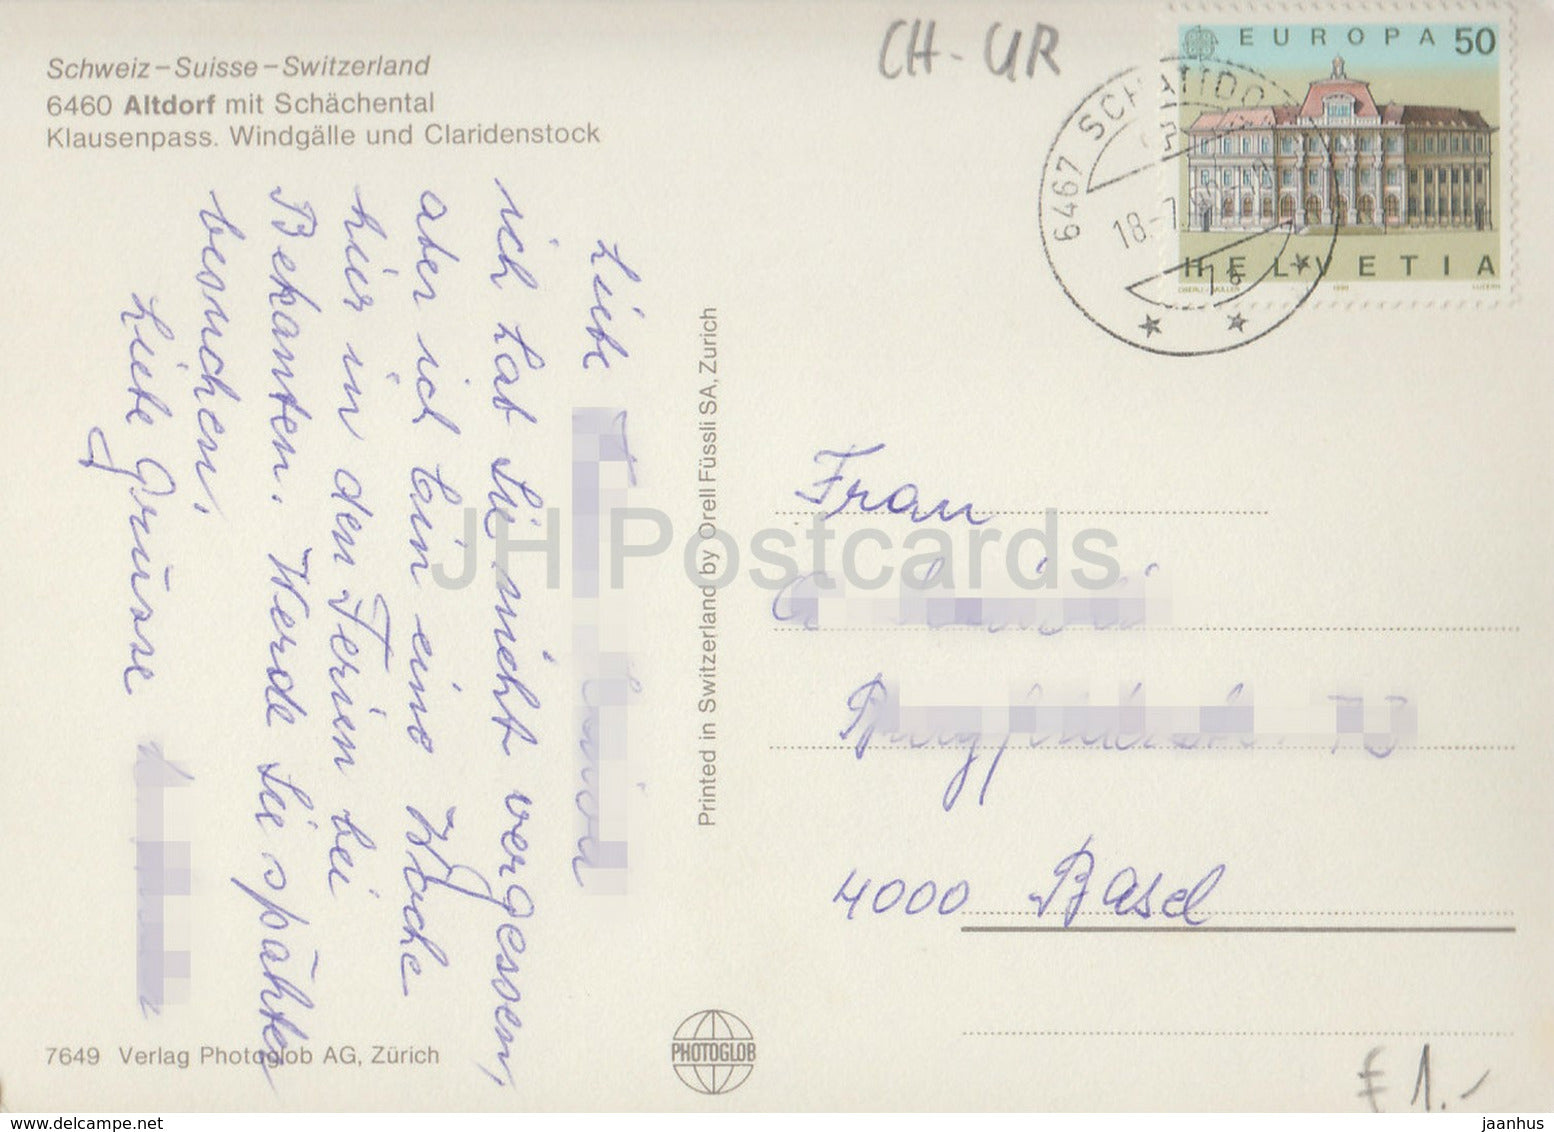 Schweiz – Suisse – Switzerland
6460 Altdorf mit Schächental
Klausenpass. Windgälle und Claridenstock
CH-UR
EUROPA 50
HELVETIA
6467 SCHATTDORF
18.-7.
Liebe
ich hab Sie nicht vergessen,
aber ich bin eine Woche
hier in den Ferien bei
Bekanten. Werde Sie später
besuchen.
Liebe Grüsse
Printed in Switzerland by Orell Füssli SA, Zurich
JH Postcards
Frau
4000 Basel
7649 Verlag Photoglob AG, Zürich
PHOTOGLOB
€ 1.-
www.hippostcard.com
jaanhus